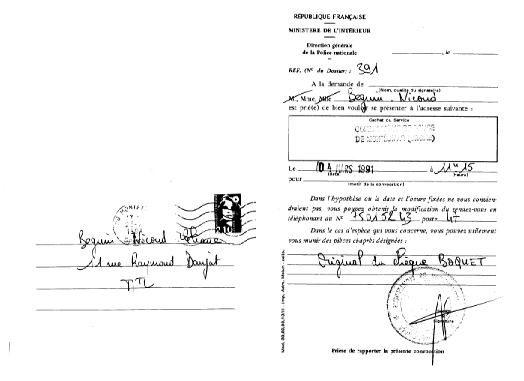 Beguin Nicoud
rue Raymond Daujat
RÉPUBLIQUE FRANÇAISE
MINISTERE DE L'INTÉRIEUR
Direction générale
de la Police nationale
, le
REF. (N° du Dossier) : 391
A la demande de
(Nom, qualité du signataire)
M., Mme, Mlle Beguin Nicoud
est prié(e) de bien vouloir se présenter à l'adresse suivante :
Cachet du Service
DE
Le 1991 à 11 H 15
(date) (heure)
pour
(motif de la convocation)
Dans l'hypothèse où la date et l'heure fixées ne vous convien-
draient pas, vous pouvez obtenir la modification du rendez-vous en
téléphonant au N° 75015243 poste 47
Dans le cas d'espèce qui vous concerne, vous pouvez utilement
vous munir des pièces ci-après désignées :
Original du chèque BAQUET
Signature
Prière de rapporter la présente convocation